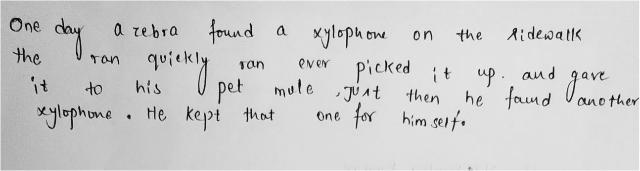 One day a zebra found a xylophone on the sidewalk
the ran quickly ran over picked it up. and gave
it to his pet mule, just then he found another
xylophone. He kept that one for himself.